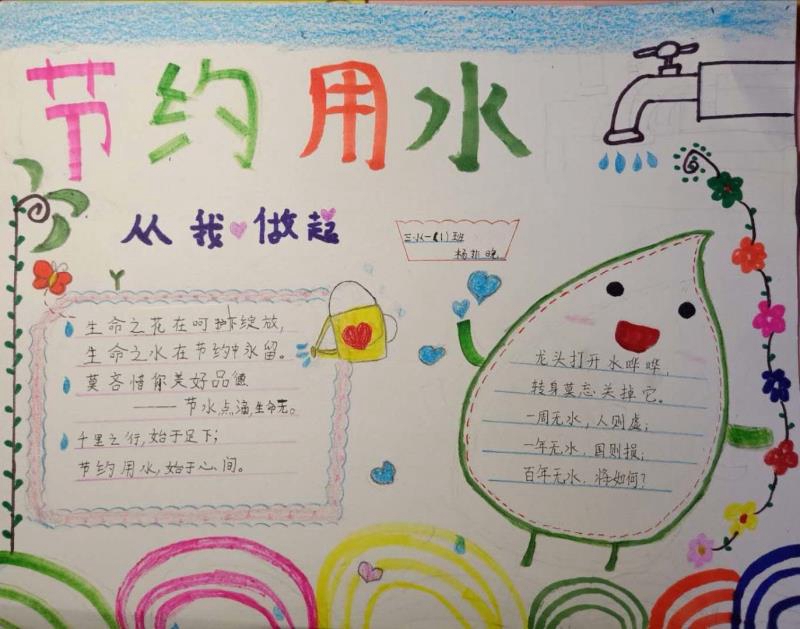 节约用水
从我做起
三小一(1)班
杨非晚
生命之花在呵护绽放，
生命之水在节约中永留。
莫吝惜你美好品德
——节水点滴，生命无。
千里之行，始于足下；
节约用水，始于心间。
龙头打开水哗哗，
转身莫忘关掉它。
一周无水，人则虚；
一年无水，国则损；
百年无水，将如何？